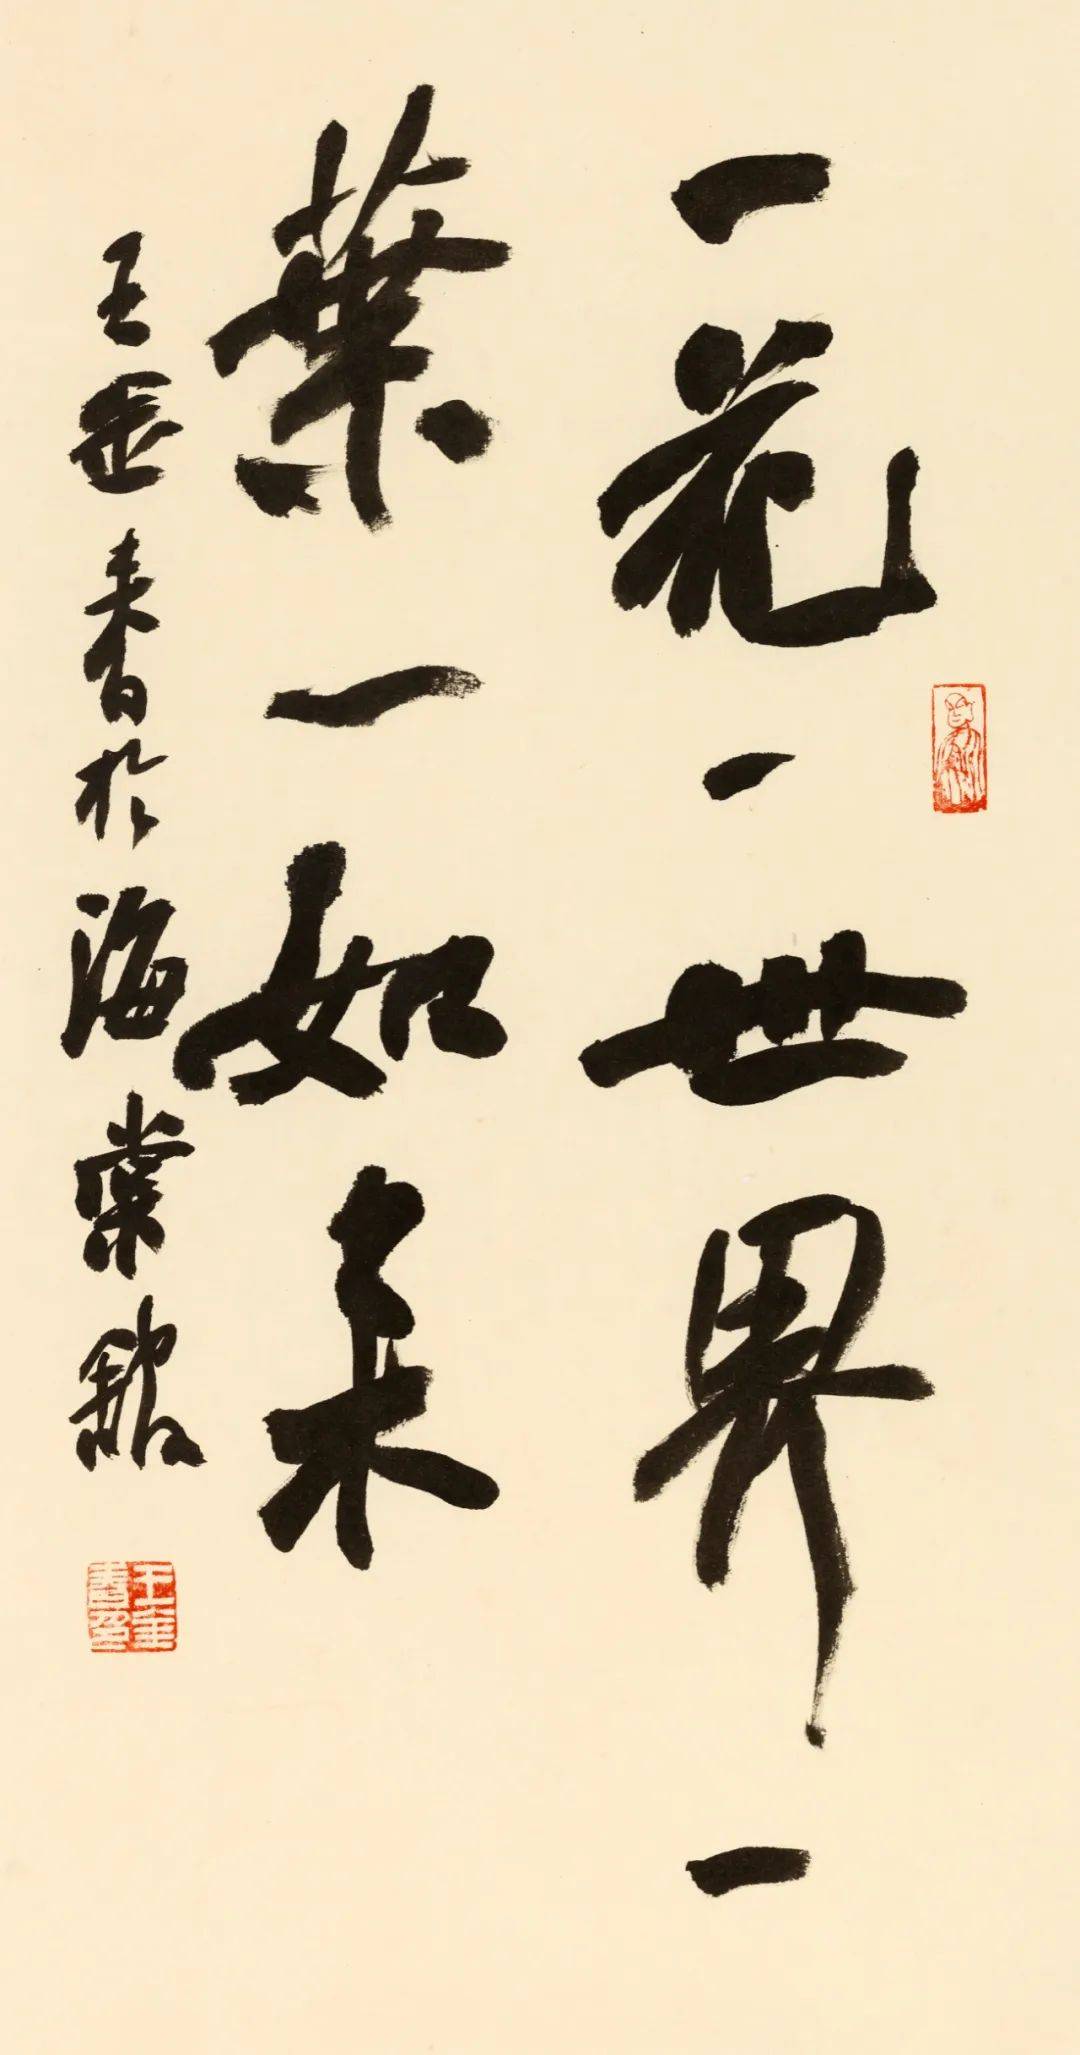 一花一世界一
葉一如来
王書於海棠館